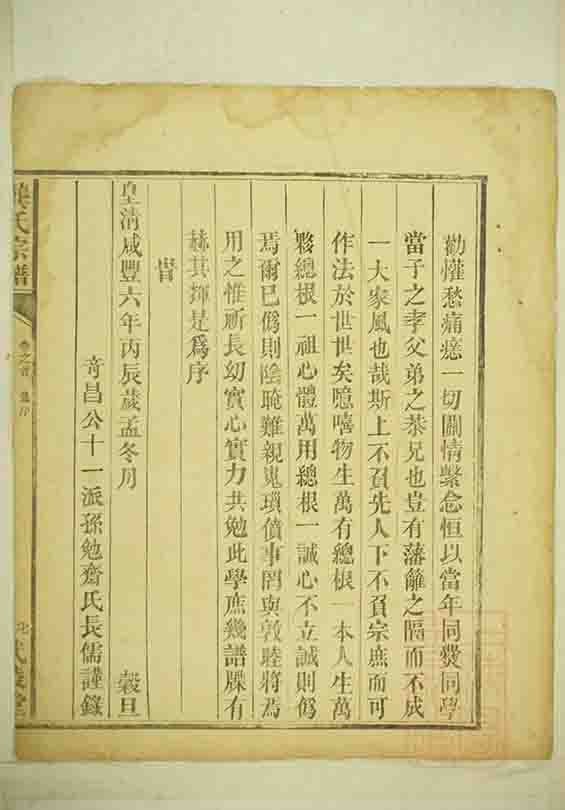 勸懽愁痛癋一切關情繫念恒以當年同爨同學
當子之孝父弟之恭兄也豈有藩籬之隔而不成
一大家風也哉斯上不負先人下不負宗庶而可
作法於世世矣噫嘻物生萬有總根一本人生萬
夥總根一祖心體萬用總根一誠心不立誠則偽
焉爾已僞則陰晻難親嵬瑣僨事罔與敦睦將焉
用之惟祈長幼實心實力共勉此學庶幾譜牒有
赫其揮是爲序
旹
皇清咸豐六年丙辰歲孟冬月 穀旦
奇昌公十一派孫勉齋氏長儒謹錄
氏宗譜
卷之首